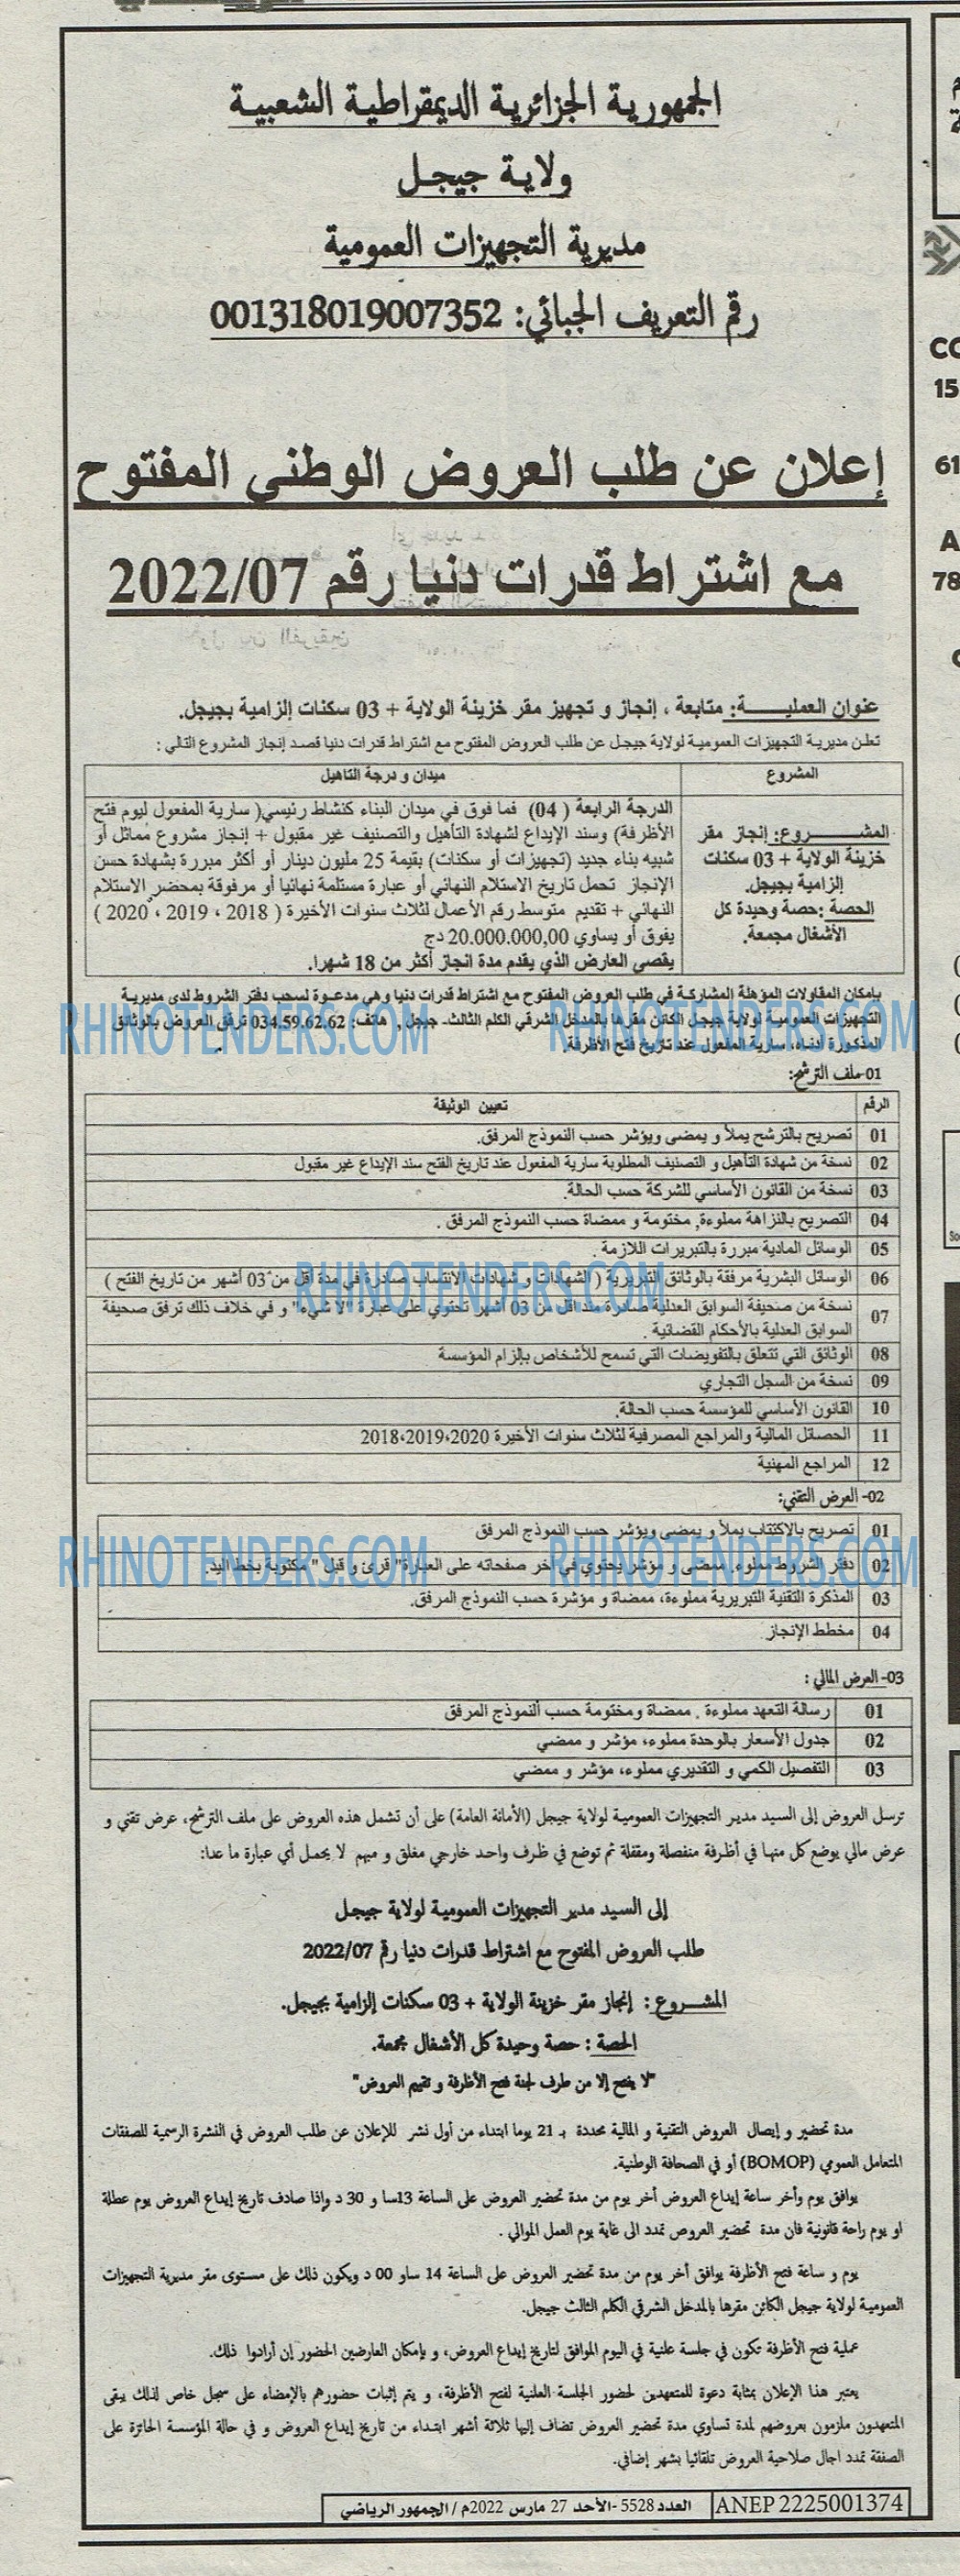 الجمهورية الجزائرية الديمقراطية الشعبية
ولاية جيجل
مديرية التجهيزات العمومية
رقم التعريف الجبائي: 001318019007352
إعلان عن طلب العروض الوطني المفتوح
مع اشتراط قدرات دنيا رقم 2022/07
عنوان العمليـــــة: متابعة ، إنجاز و تجهيز مقر خزينة الولاية + 03 سكنات إلزامية بجيجل.
تعلن مديرية التجهيزات العمومية لولاية جيجل عن طلب العروض المفتوح مع اشتراط قدرات دنيا قصد إنجاز المشروع التالي :
المشروع
ميدان و درجة التاهيل
المشـــــروع: إنجاز مقر
خزينة الولاية + 03 سكنات
إلزامية بجيجل.
الحصة :حصة وحيدة كل
الأشغال مجمعة.
الدرجة الرابعة ( 04) فما فوق في ميدان البناء كنشاط رئيسي( سارية المفعول ليوم فتح
الأظرفة) وسند الإيداع لشهادة التأهيل والتصنيف غير مقبول + إنجاز مشروع مماثل أو
شبيه بناء جديد (تجهيزات أو سكنات) بقيمة 25 مليون دينار أو أكثر مبررة بشهادة حسن
الإنجاز تحمل تاريخ الاستلام النهائي أو عبارة مستلمة نهائيا أو مرفوقة بمحضر الاستلام
النهائي + تقديم متوسط رقم الأعمال لثلاث سنوات الأخيرة ( 2018 ، 2019 ، 2020 )
يفوق أو يساوي 20.000.000,00 دج
يقصى العارض الذي يقدم مدة انجاز أكثر من 18 شهرا.
بإمكان المقاولات المؤهلة المشاركة في طلب العروض المفتوح مع اشتراط قدرات دنيا وهي مدعوة لسحب دفتر الشروط لدى مديرية
التجهيزات العمومية لولاية جيجل الكائن مقرها بالمدخل الشرقي الكلم الثالث- جيجل , هاتف: 034.59.62.62 ترفق العروض بالوثائق
المذكورة أدناه، سارية المفعول عند تاريخ فتح الأظرفة.
RHINOTENDERS.COM
RHINOTENDERS.COM
01-ملف الترشح:
الرقم تعيين الوثيقة
01 تصريح بالترشح يملأ و يمضى ويؤشر حسب النموذج المرفق.
02 نسخة من شهادة التأهيل و التصنيف المطلوبة سارية المفعول عند تاريخ الفتح سند الإيداع غير مقبول
03 نسخة من القانون الأساسي للشركة حسب الحالة.
04 التصريح بالنزاهة مملوءة, مختومة و ممضاة حسب النموذج المرفق .
05 الوسائل المادية مبررة بالتبريرات اللازمة .
06 الوسائل البشرية مرفقة بالوثائق التبريرية ( الشهادات و شهادات الانتساب صادرة في مدة أقل من 03 أشهر من تاريخ الفتح )
RHINOTENDERS.COM
07 نسخة من صحيفة السوابق العدلية صادرة منذ اقل من 03 أشهر تحتوي على عبارة "لا شيء" و في خلاف ذلك ترفق صحيفة
السوابق العدلية بالأحكام القضائية .
08 الوثائق التي تتعلق بالتفويضات التي تسمح للأشخاص بإلزام المؤسسة
09 نسخة من السجل التجاري
10 القانون الأساسي للمؤسسة حسب الحالة.
11 الحصائل المالية والمراجع المصرفية لثلاث سنوات الأخيرة 2020،2019،2018
12 المراجع المهنية
02- العرض التقني:
01 تصريح بالاكتتاب يملأ و يمضى ويؤشر حسب النموذج المرفق
02 دفتر الشروط مملوء, ممضى و مؤشر يحتوي في آخر صفحاته على العبارة" قرئ و قبل " مكتوبة بخط اليد.
RHINOTENDERS.COM
RHINOTENDERS.COM
03 المذكرة التقنية التبريرية مملوءة، ممضاة و مؤشرة حسب النموذج المرفق.
04 مخطط الإنجاز
03- العرض المالي :
01 رسالة التعهد مملوءة , ممضاة ومختومة حسب النموذج المرفق
02 جدول الأسعار بالوحدة مملوء، مؤشر و ممضي
03 التفصيل الكمي و التقديري مملوء، مؤشر و ممضي
ترسل العروض إلى السيد مدير التجهيزات العمومية لولاية جيجل (الأمانة العامة) على أن تشمل هذه العروض على ملف الترشح، عرض تقني و
عرض مالي يوضع كل منها في أظرفة منفصلة ومقفلة ثم توضع في ظرف واحد خارجي مغلق و مبهم لا يحمل أي عبارة ما عدا:
إلى السيد مدير التجهيزات العمومية لولاية جيجل
طلب العروض المفتوح مع اشتراط قدرات دنيا رقم 2022/07
المشـــروع : إنجاز مقر خزينة الولاية + 03 سكنات إلزامية بجيجل.
الحصة : حصة وحيدة كل الأشغال مجمعة.
"لا يفتح إلا من طرف لجنة فتح الأظرفة و تقييم العروض"
مدة تحضير و إيصال العروض التقنية و المالية محددة بـ 21 يوما ابتداء من أول نشر للإعلان عن طلب العروض في النشرة الرسمية للصفقات
المتعامل العمومي (BOMOP) أو في الصحافة الوطنية.
يوافق يوم وأخر ساعة إيداع العروض أخر يوم من مدة تحضير العروض على الساعة 13سا و 30 د وإذا صادف تاريخ إيداع العروض يوم عطلة
او يوم راحة قانونية فان مدة تحضير العروض تمدد الى غاية يوم العمل الموالي .
يوم و ساعة فتح الأظرفة يوافق أخر يوم من مدة تحضير العروض على الساعة 14 ساو 00 د ويكون ذلك على مستوى مقر مديرية التجهيزات
العمومية لولاية جيجل الكائن مقرها بالمدخل الشرقي الكلم الثالث جيجل.
عملية فتح الأظرفة تكون في جلسة علنية في اليوم الموافق لتاريخ إيداع العروض، و بإمكان العارضين الحضور إن أرادوا ذلك.
يعتبر هذا الإعلان بمثابة دعوة للمتعهدين لحضور الجلسة العلنية لفتح الأظرفة، و يتم إثبات حضورهم بالإمضاء على سجل خاص لذلك يبقى
المتعهدون ملزمون بعروضهم لمدة تساوي مدة تحضير العروض تضاف إليها ثلاثة أشهر ابتداء من تاريخ إيداع العروض و في حالة المؤسسة الحائزة على
الصفقة تمدد اجال صلاحية العروض تلقائيا بشهر إضافي.
ANEP 2225001374
العدد 5528 -الأحد 27 مارس 2022م / الجمهور الرياضي